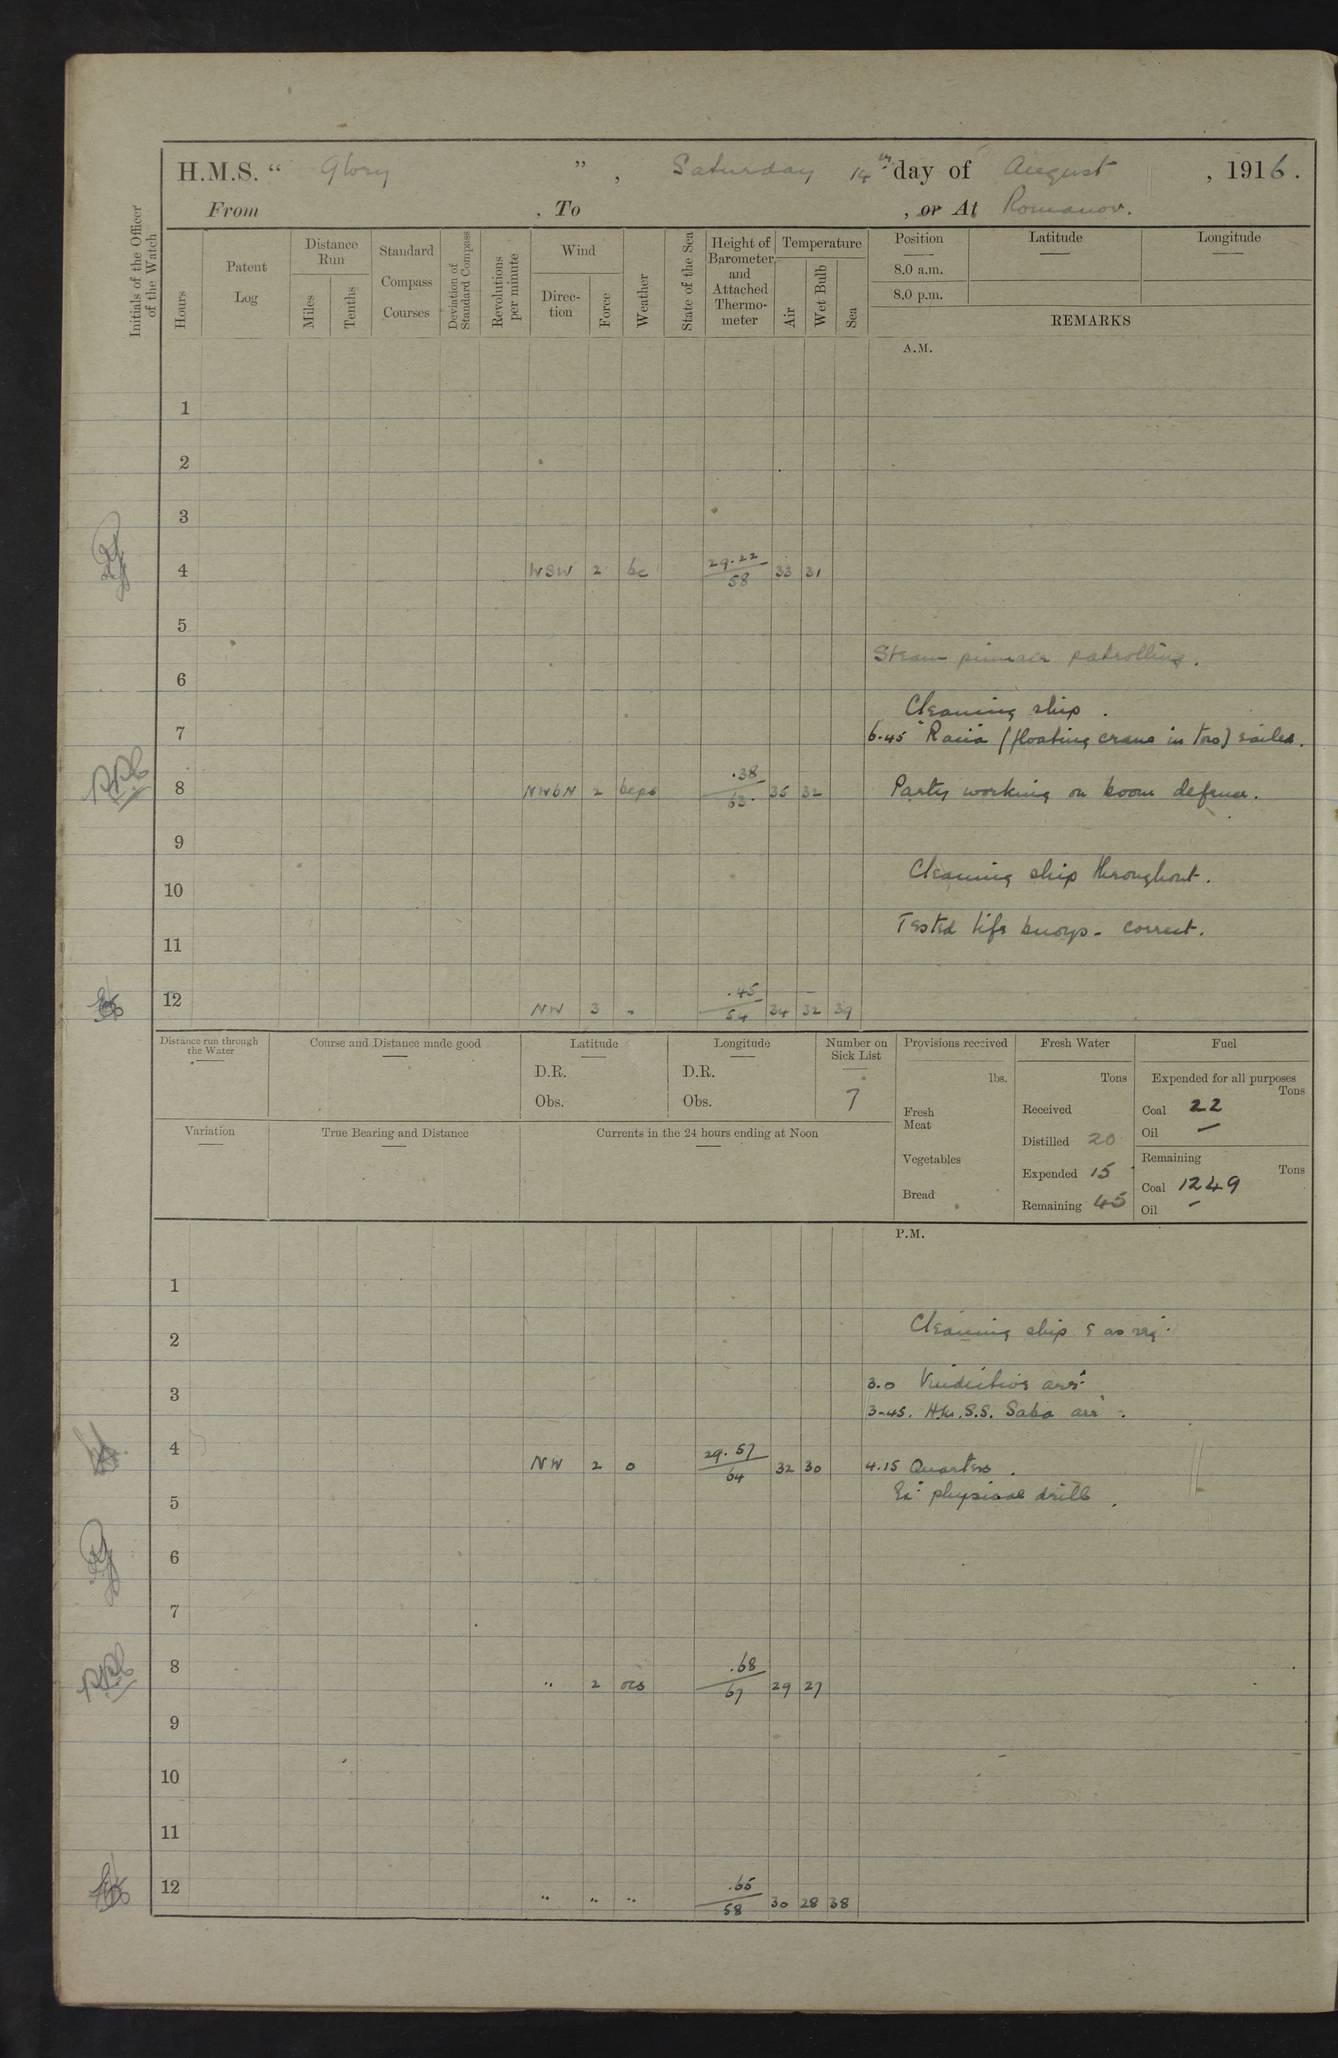 H.M.S. “ Glory ” , Saturday 14th day of August , 1916 .
From , To , or At Romanov.
Initials of the Officer of the Watch
Hours
Patent Log
Distance Run
Miles
Tenths
Standard Compass Courses
Deviation of Standard Compass
Revolutions per minute
Wind
Direc- tion
Force
Weather
State of the Sea
Height of Barometer and Attached Thermo- meter
Temperature
Air
Wet Bulb
Sea
Position
8.0 a.m.
8.0 p.m.
Latitude
Longitude
REMARKS
A.M.
1
2
3
4 WSW 2 bc 29.22 58 33 31
5
Steam pinnace patrolling.
6
Cleaning ship .
7 6.45 (floating crane in tow) sailed.
8 NWbN 2 bcps .38 63. 35 32 Party working on boom defence.
9
Cleaning ship throughout.
10
Tested life buoys - correct.
11
12 NW 3 " .45 54 34 32 39
Distance run through the Water
Course and Distance made good
Latitude
D.R.
Obs.
Longitude
D.R.
Obs.
Number on Sick List
7
Provisions received
lbs.
Fresh Meat
Vegetables
Bread
Fresh Water
Tons
Received
Distilled 20
Expended 15
Remaining 45
Fuel
Expended for all purposes
Tons
Coal 22
Oil —
Remaining
Tons
Coal 1249
Oil –
Variation
True Bearing and Distance
Currents in the 24 hours ending at Noon
P.M.
1
Cleaning ship & as req:
2
3.0 Vindictive arrd
3
3-45. H.M.S.S. Saba arrd.
4 NW 2 o 29.57 64 32 30 4.15 Quarters .
Ex: physical drill .
5
6
7
8 " 2 ocs .68 67 29 27
9
10
11
12 " " " .65 58 30 28 38